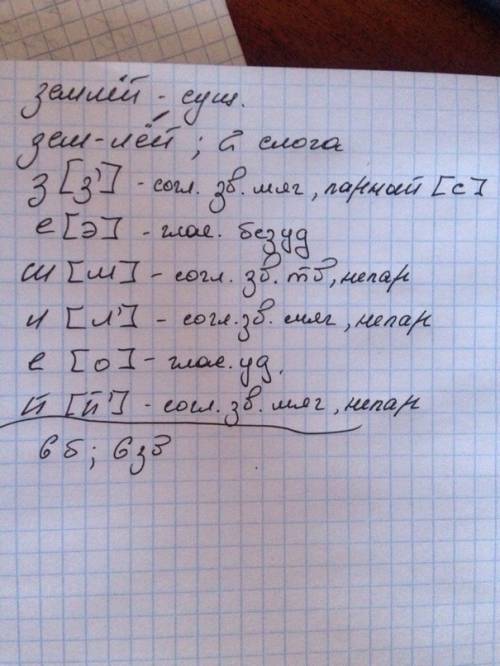 землёй - сущ.
зем-лёй ; 2 слога
з [з'] - согл. зв. мяг, парный [с]
е [э] - глас. безуд
м [м] - согл. зв. тв, непар
л [л'] - согл. зв. мяг, непар
е [о] - глас. уд.
й [й'] - согл. зв. мяг, непар
6 б ; 6 зв